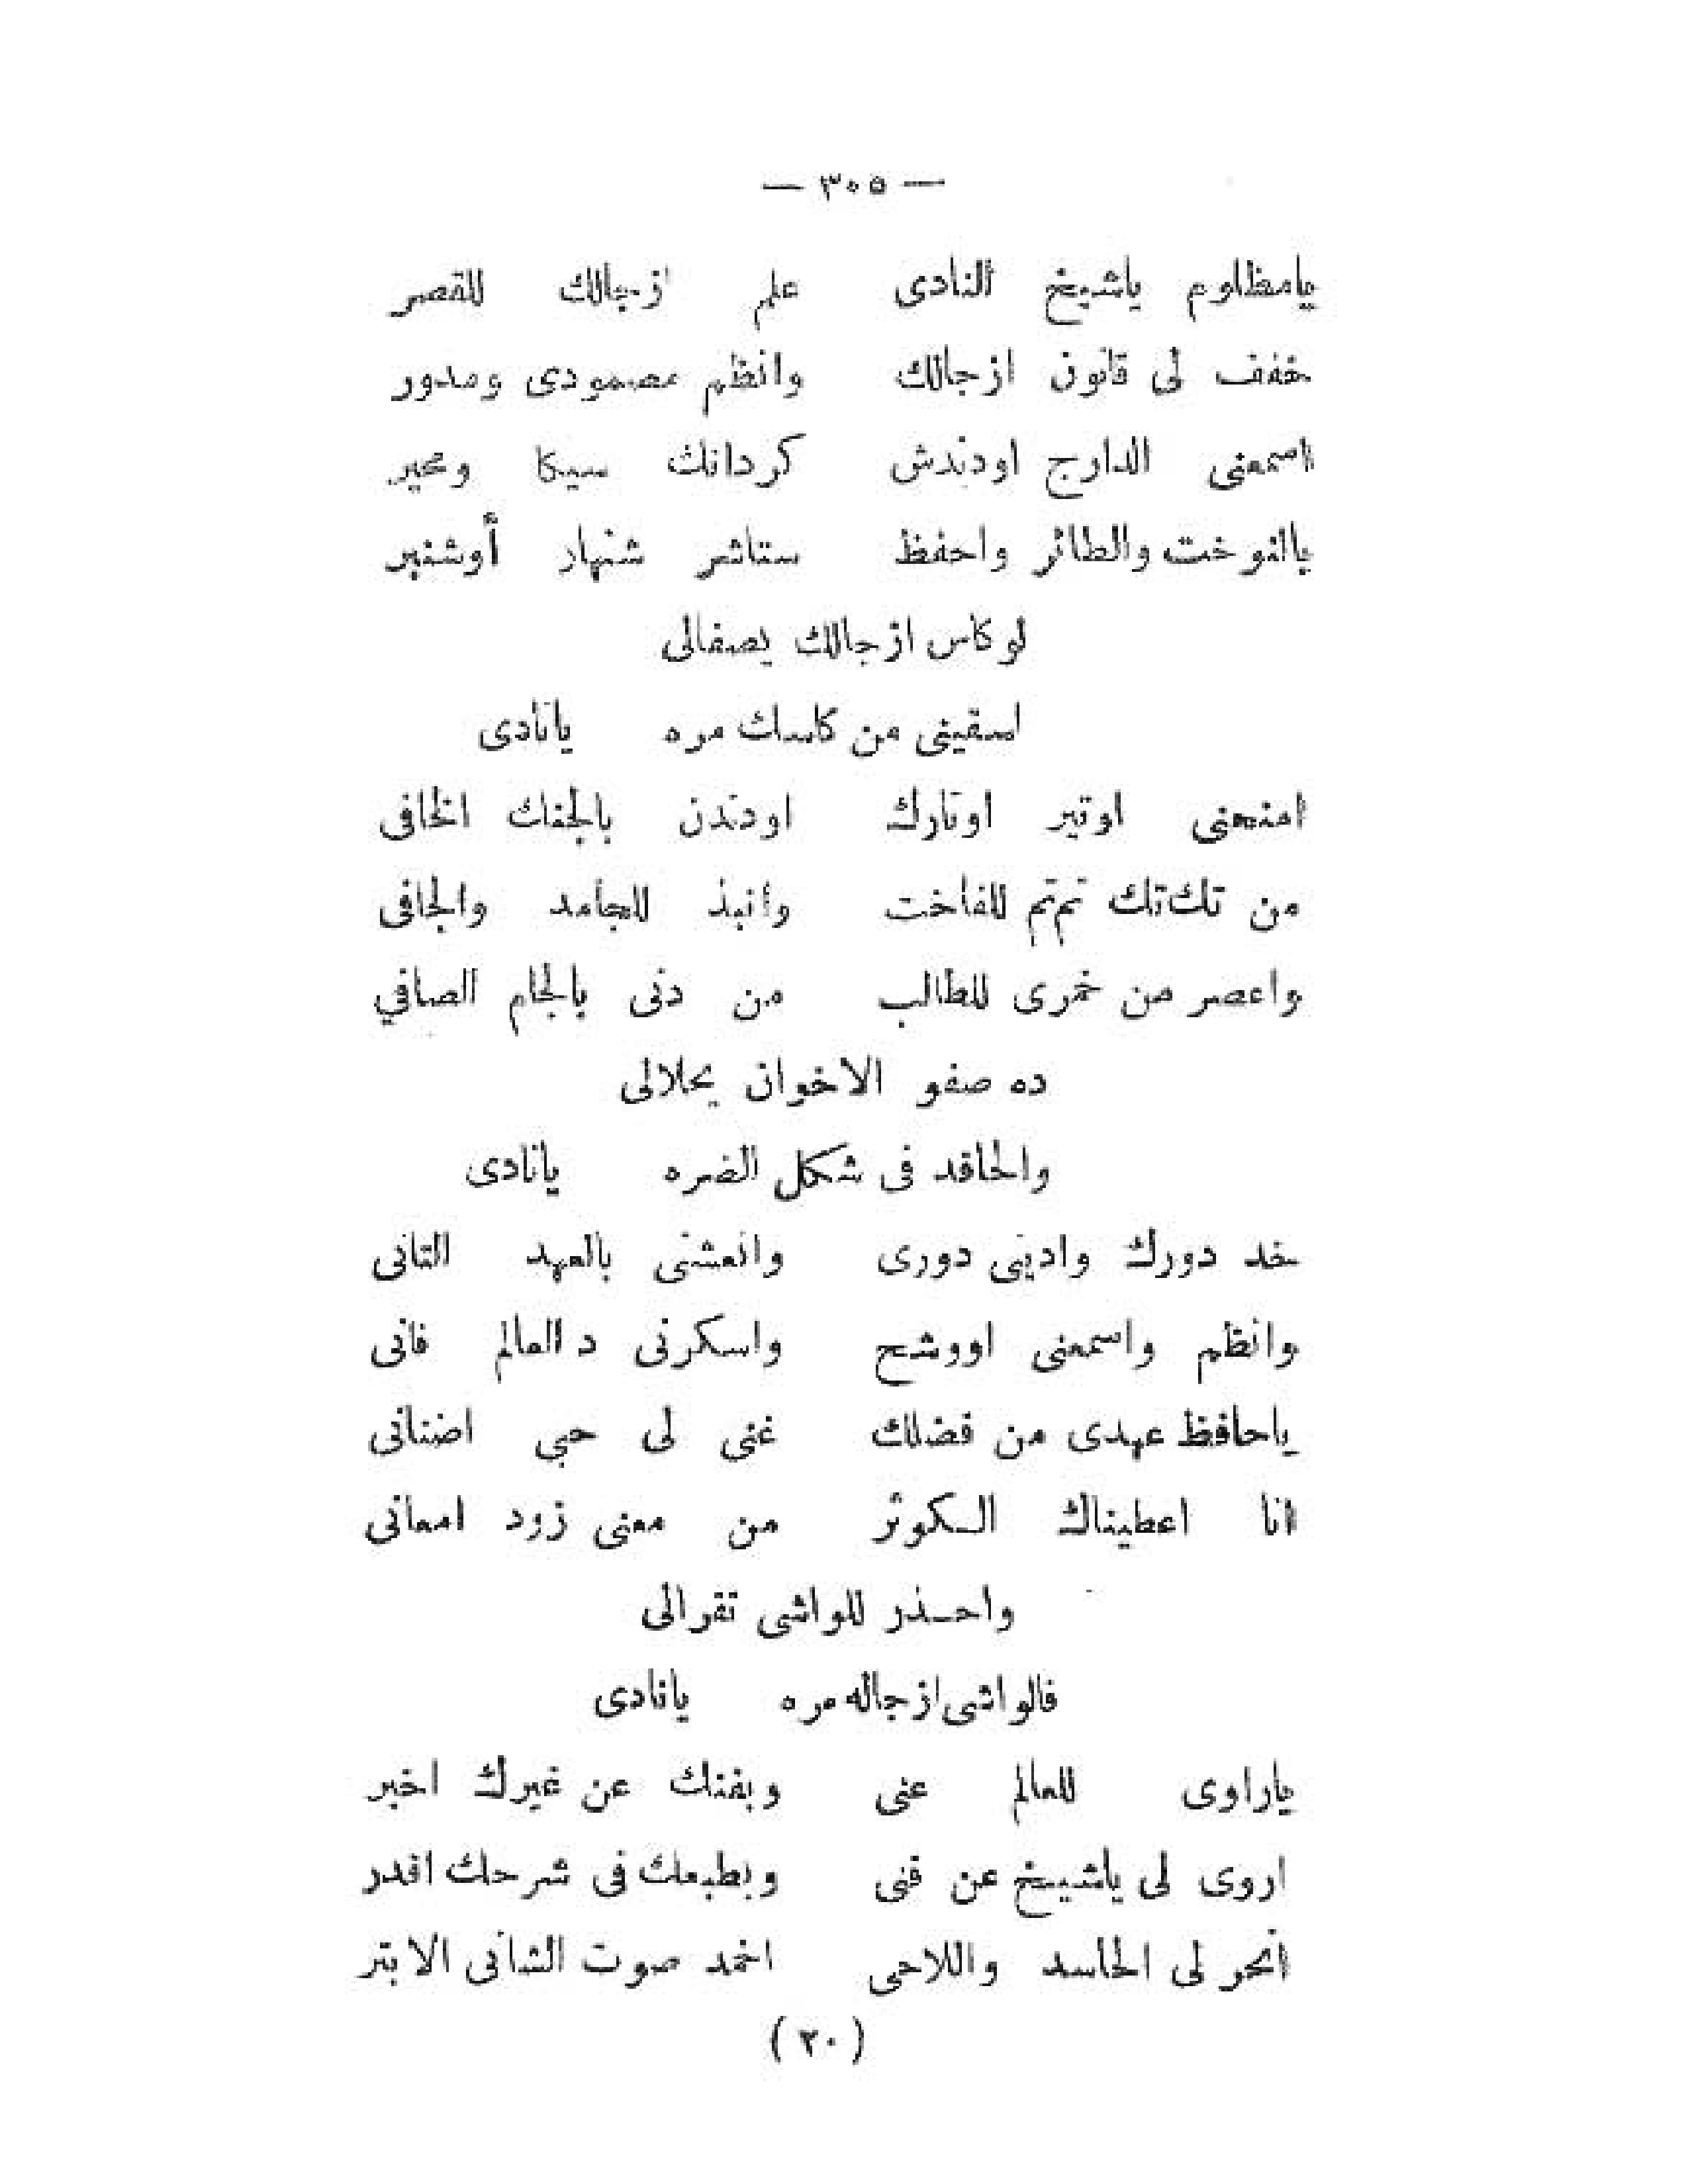 — ٣٠٥ —
يامظلوم ياشيخ النادى علم ازجالك للقصر
خفف لى قانون ازجالك وانظم مصمودى ومدور
اسمعنى الدارج اودندش كردانك سيكا ومحير
بالنوخت والطائر واحفظ ستاشر شنهار أوشنبر
لوكاس ازجالك يصفالى
اسقينى من كاسك مره يانادى
امنحنى اوتير اوتارك اودندن بالجنك الخافى
من تك تك تم تم للفاخت وانبذ للجامد والجافى
واعصر من خمرى للطالب من دنى بالجام الصافي
ده صفو الاخوان يحلالى
والحاقد فى شكل الضره يانادى
خد دورك وادينى دورى وانعشنى بالعهد التانى
وانظم واسمعنى اووشح واسكرنى د العالم فانى
ياحافظ عهدى من فضلك غنى لى حبي اضنانى
انا اعطيناك الكوثر من معنى زود امعانى
واحذر للواشى تقرالى
فالواشى ازجاله مره يانادى
ياراوى للعالم عنى وبفنك عن غيرك اخبر
اروى لى ياشيخ عن فنى وبطبعك فى شرحك اقدر
أنحر لى الحاسد واللاحى اخمد صوت الشانى الابتر
(٢٠)